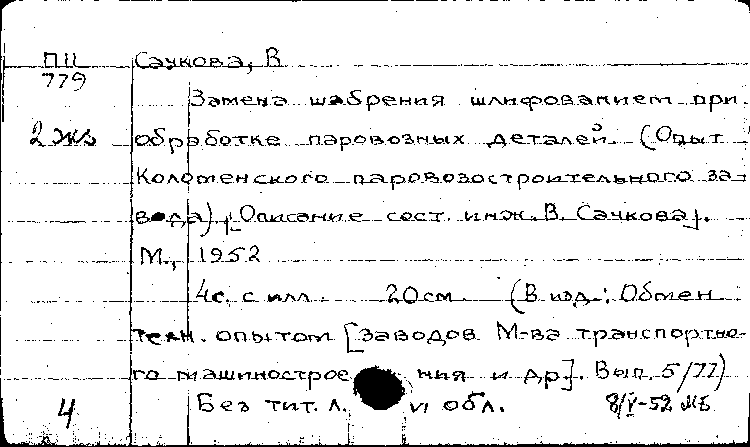 ПII Сачкова, В
779
Замена шабрения шлифованием при
2 экз обработке паровозных деталей. (Опыт
Коломенского паровозостроительного за-
вода). [Описание сост. инж. В. Сачкова].
М., 1952
4с. с илл. 20см. (В изд.: Обмен
техн. опытом [заводов М-ва транспортно-
го машиностроения и др]. Вып. 5/77)
4 Без тит. л. и обл. 8/V-52 МБ